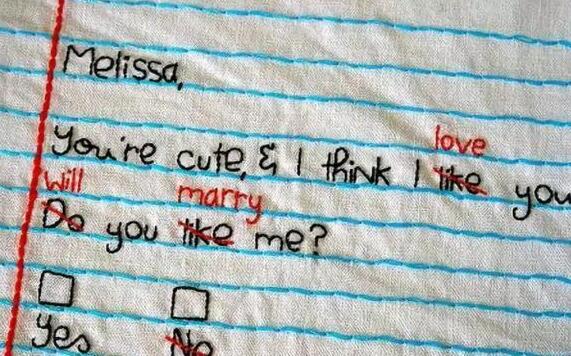 Melissa,
love
You're cute, & I think I like you
Will marry
Do you like me?
Yes No